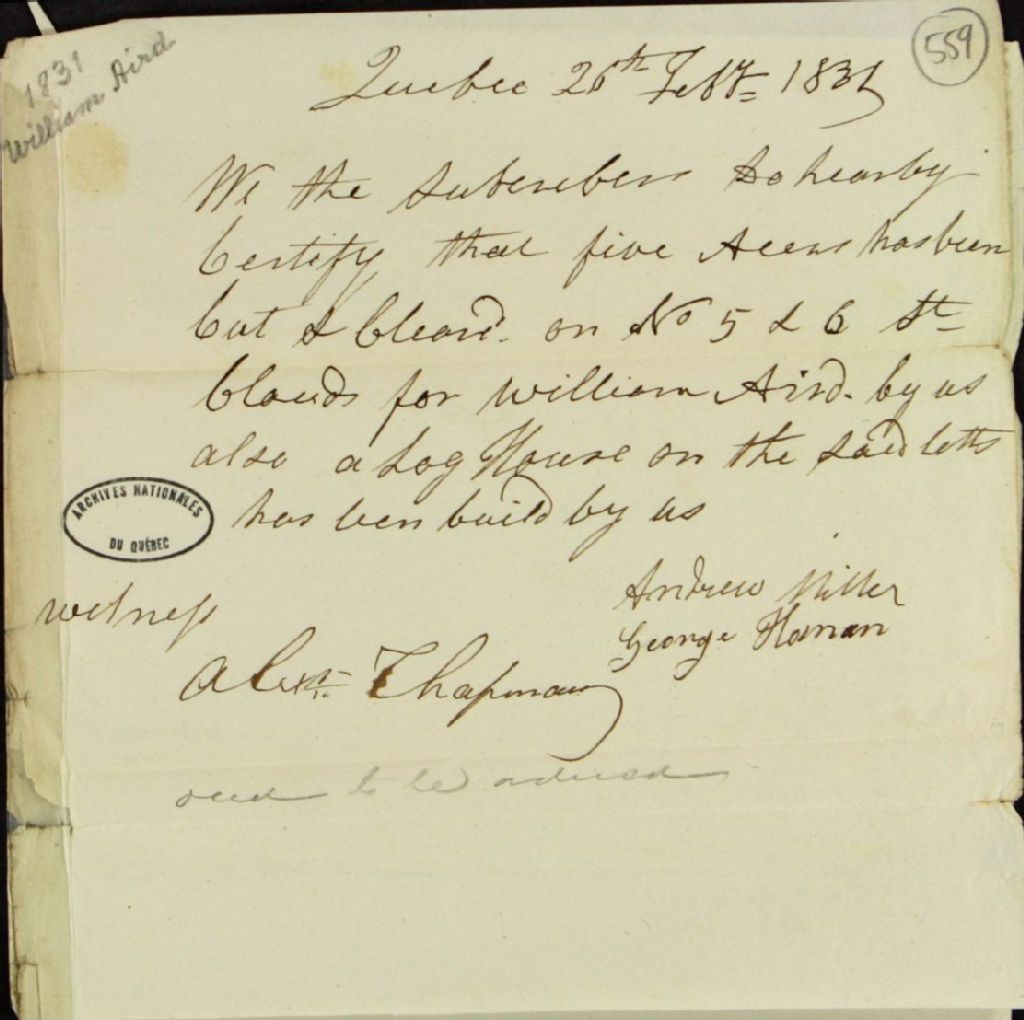 1831
William Aird
559
Quebec 26th Feby 1831
We the Subscribers do hearby
Certify that five Acers has been
Cut & Cleard. on No 5 & 6 St
Clouds for William Aird. by us
also a Log House on the said lotts
has ben build by us
ARCHIVES NATIONALES
DU QUÉBEC
witness
Andrew Miller
George
Alexr. Chapman
to be